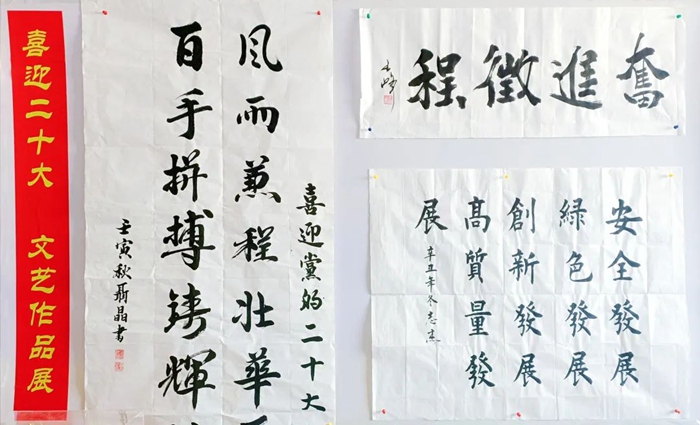 喜迎二十大 文艺作品展
喜迎黨的二十大
风雨兼程壮華
百手拼搏铸輝
壬寅秋聂晶書
奮進徵程
安全發展
緑色發展
創新發展
高質量發
展
辛丑年冬志杰